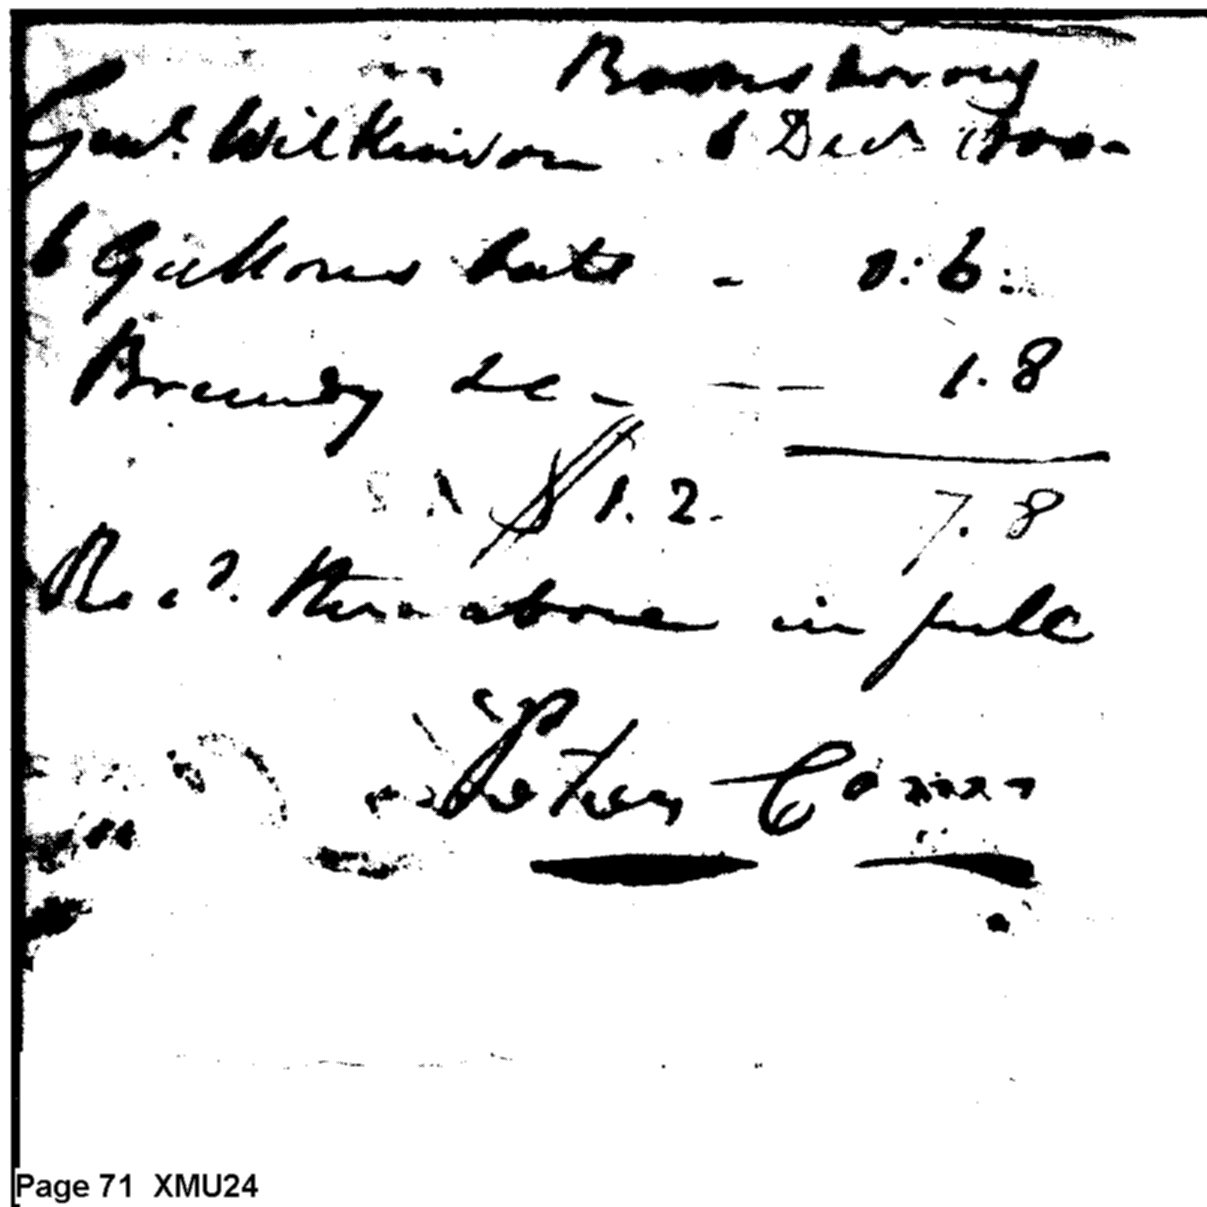 Boonsborroug
Genl. Wilkinson 6 Decr. 1800-
6 Gallons Oats - 0:6:
Brandy &c - -- 1.8
$1.2. 7.8
Recd. the above in full
Peter Conn
Page 71 XMU24